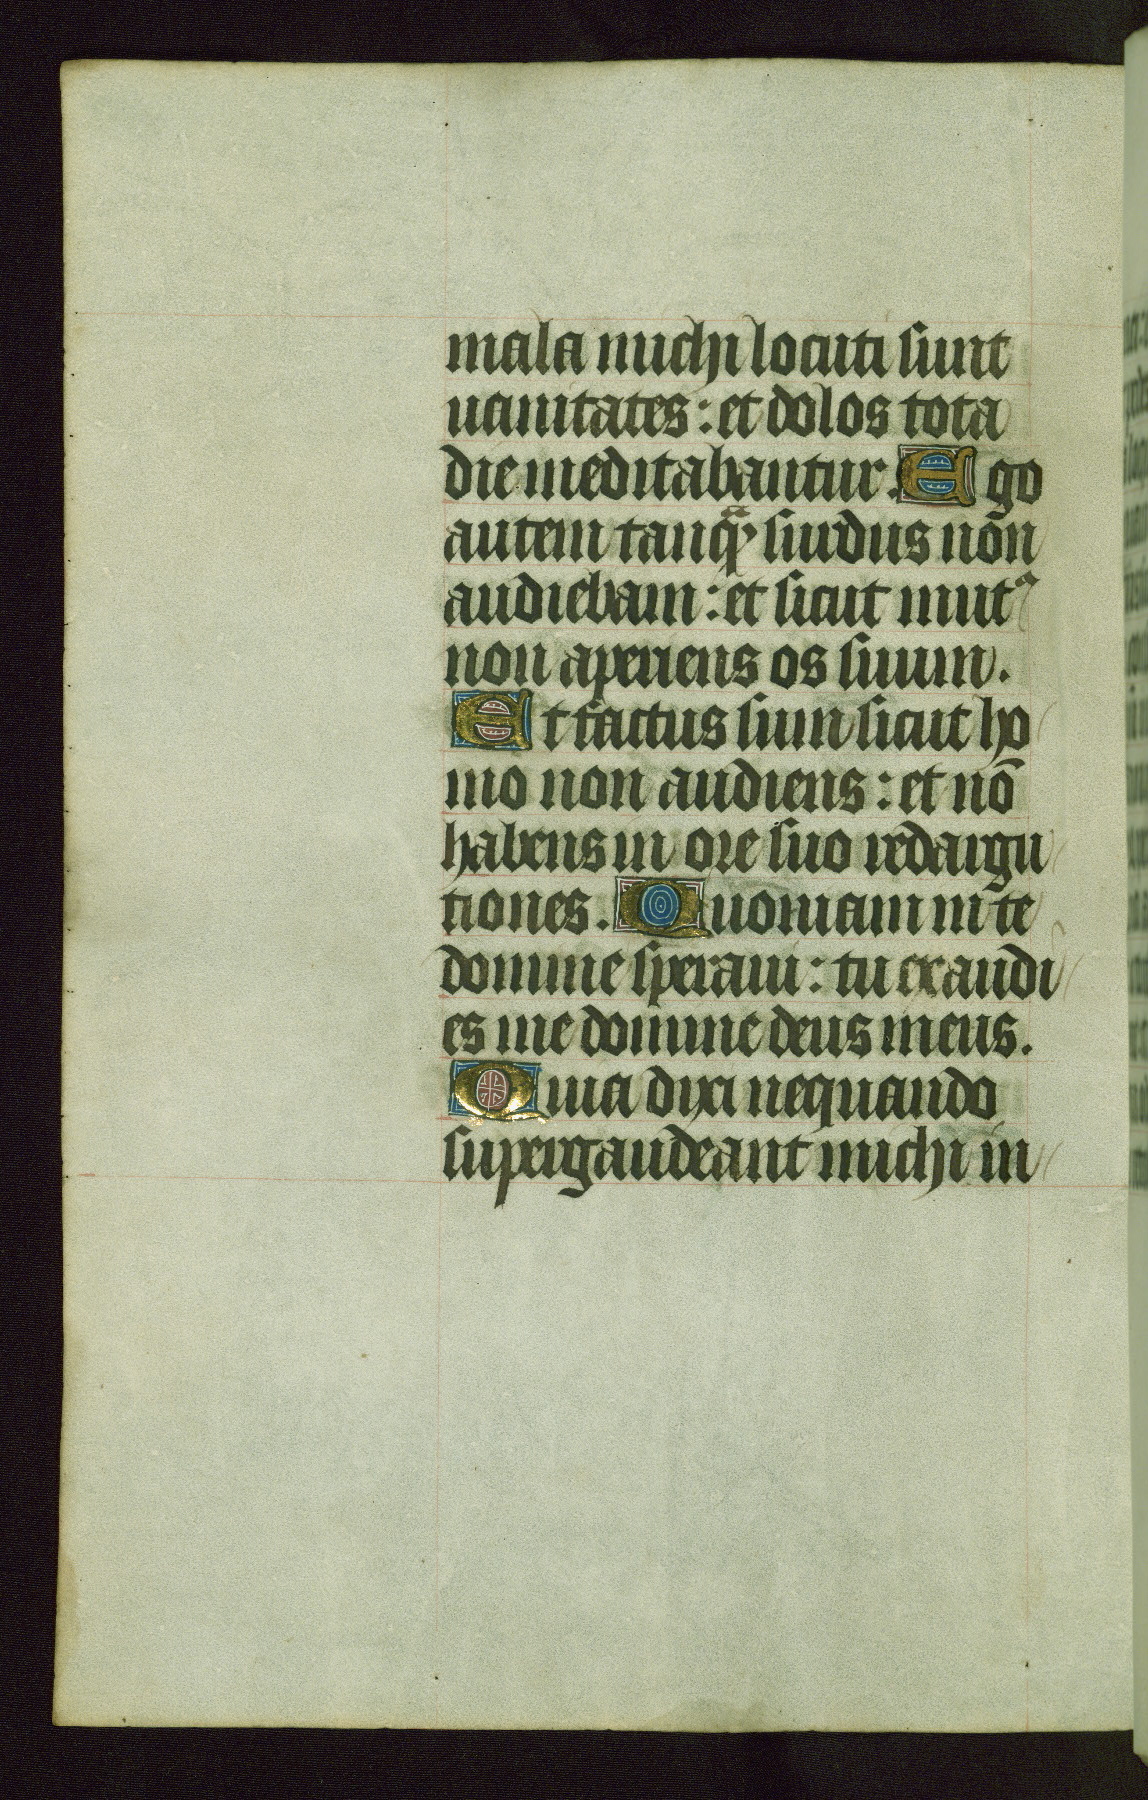 mala michi locuti sunt
uanitates: et dolos tota
die meditabantur. Ego
autem tanqͣꝫ surdus non
audiebam: et sicut mutꝰ
non aperiens os suum.
Et factus sum sicut ho
mo non audiens: et nō
habens in ore suo redargu
tiones. Quoniam in te
domine speraui: tu exaudi
es me domine deus meus.
Quia dixi nequando
supergaudeant michi in